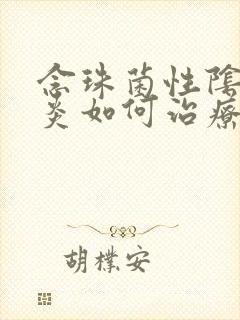 念珠菌性陰
炎如何治療
胡樸安